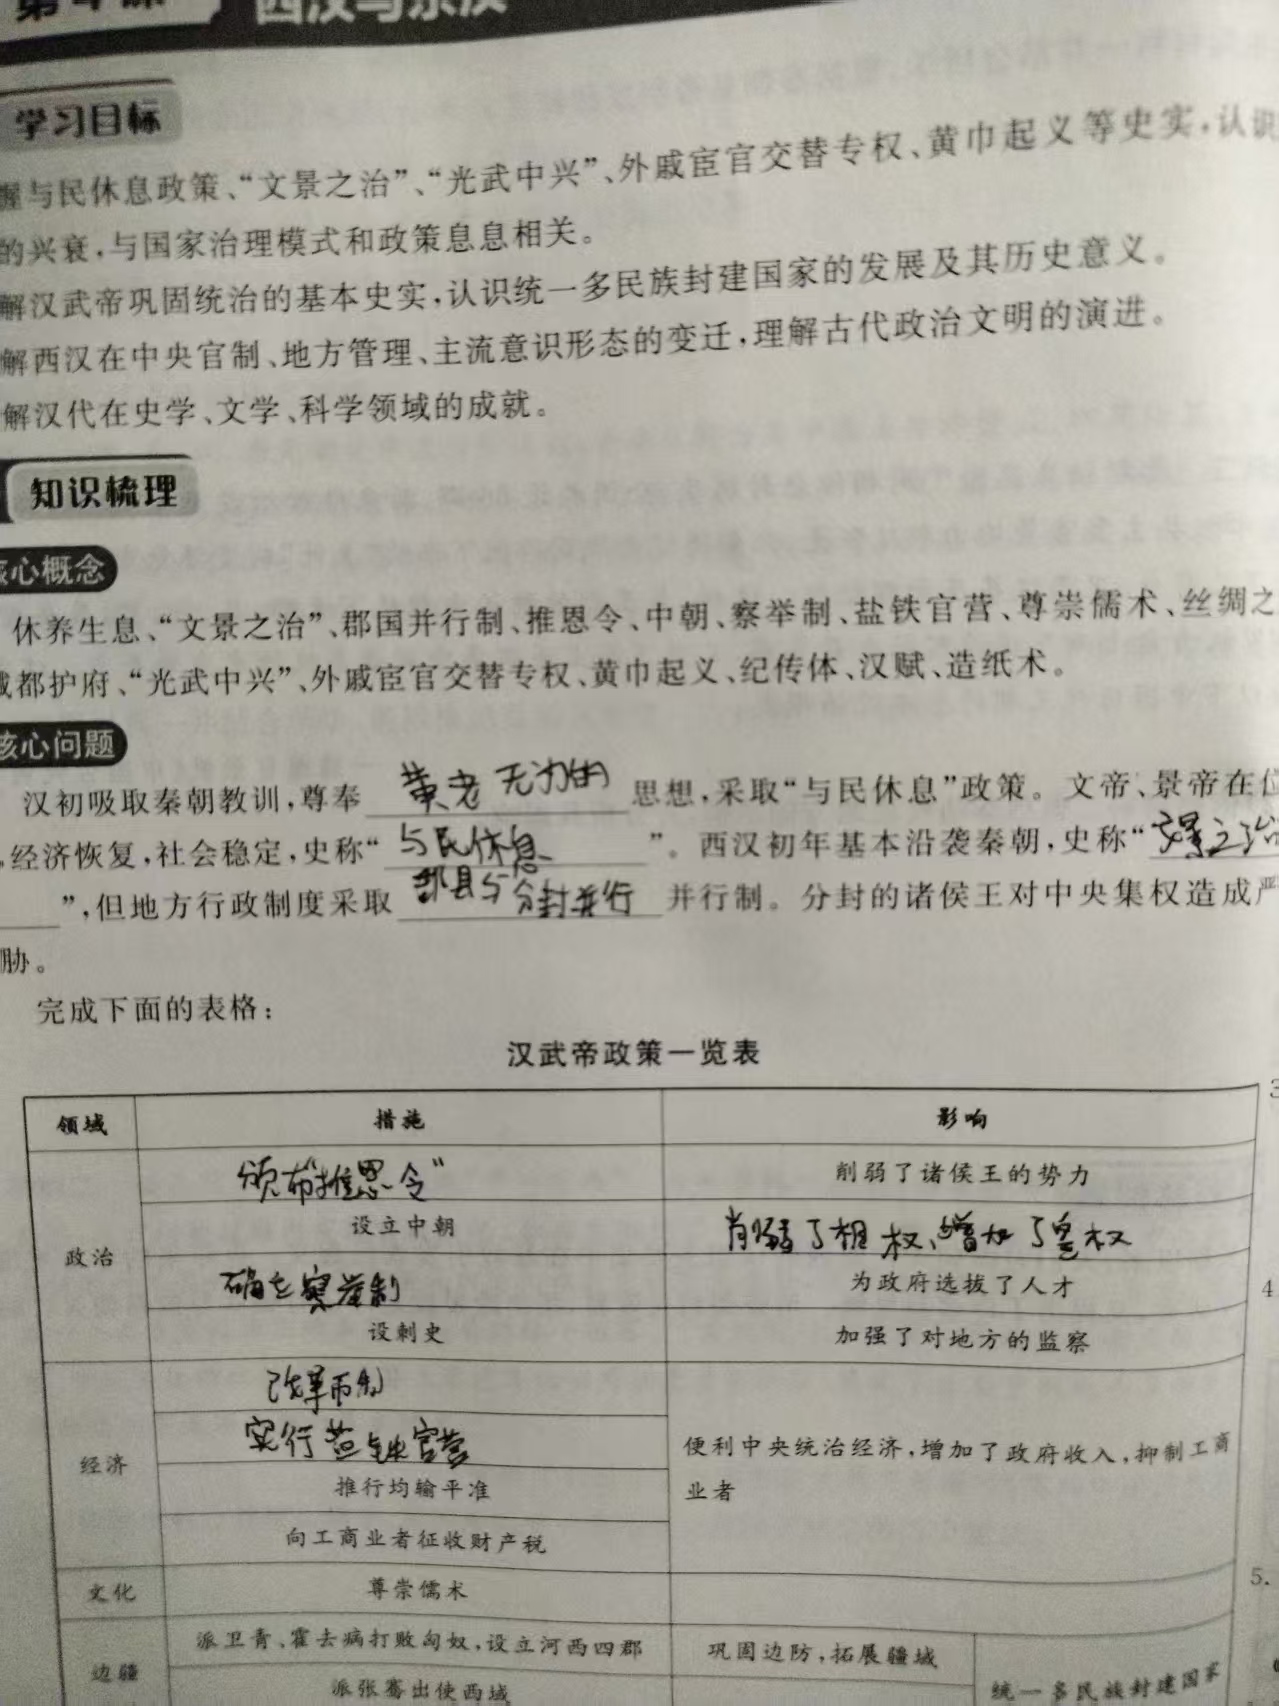 学习目标
握与民休息政策、“文景之治”、“光武中兴”、外戚宦官交替专权、黄巾起义等史实,认识
的兴衰,与国家治理模式和政策息息相关。
解汉武帝巩固统治的基本史实,认识统一多民族封建国家的发展及其历史意义。
解西汉在中央官制、地方管理、主流意识形态的变迁,理解古代政治文明的演进。
解汉代在史学、文学、科学领域的成就。
知识梳理
核心概念
休养生息、“文景之治”、郡国并行制、推恩令、中朝、察举制、盐铁官营、尊崇儒术、丝绸之
域都护府、“光武中兴”、外戚宦官交替专权、黄巾起义、纪传体、汉赋、造纸术。
核心问题
汉初吸取秦朝教训,尊奉 黄老无为的 思想,采取“与民休息”政策。文帝、景帝在位
,经济恢复,社会稳定,史称“ 与民休息 ”。西汉初年基本沿袭秦朝,史称“文景之治
”,但地方行政制度采取 郡县与分封并行 并行制。分封的诸侯王对中央集权造成严
胁。
完成下面的表格:
汉武帝政策一览表
领域 措施 影响
政治 颁布“推恩令” 削弱了诸侯王的势力
设立中朝 削弱了相权、增加了皇权
确立察举制 为政府选拔了人才
设刺史 加强了对地方的监察
经济 改革币制 便利中央统治经济,增加了政府收入,抑制工商
业者
实行盐铁官营
推行均输平准
向工商业者征收财产税
文化 尊崇儒术
边疆 派卫青、霍去病打败匈奴,设立河西四郡 巩固边防,拓展疆域
派张骞出使西域 统一多民族封建国家
3
4
5.